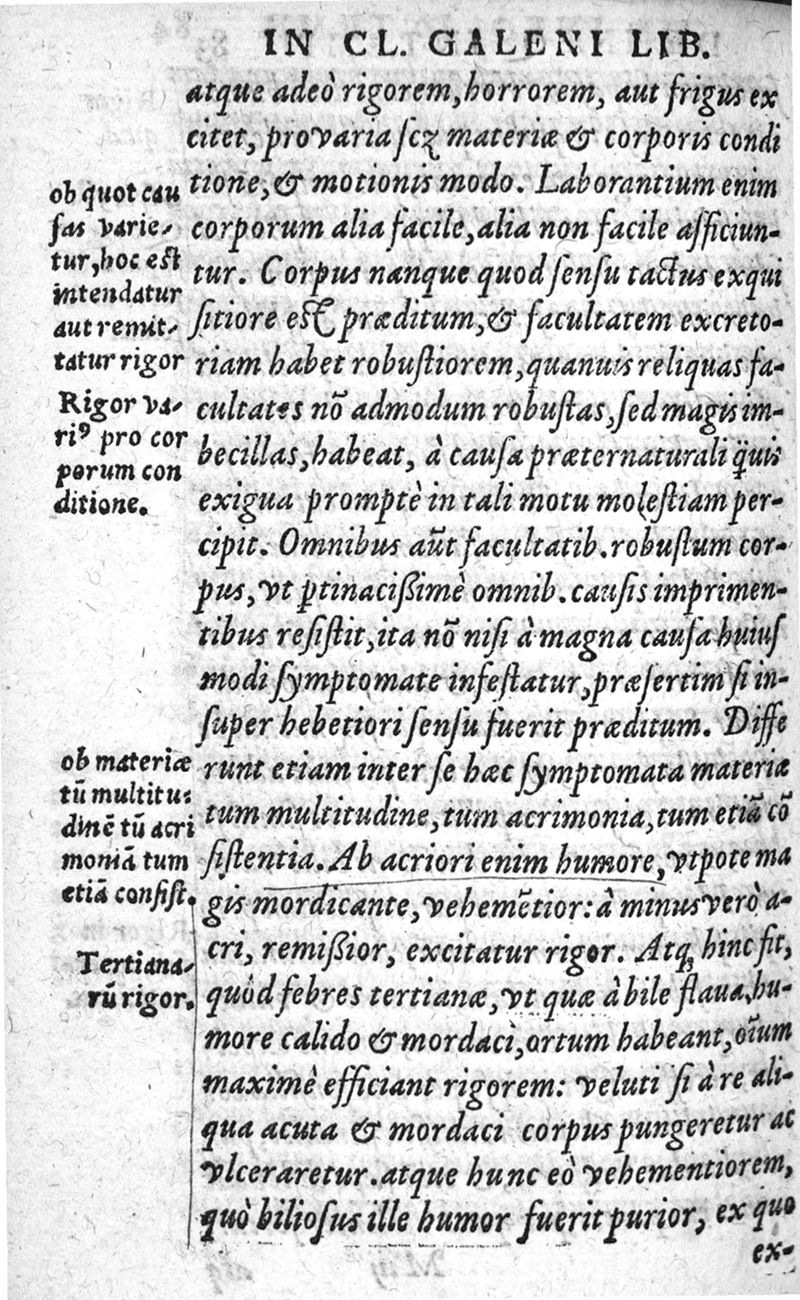 IN CL. GALENI LIB.
atque adeò rigorem, horrorem, aut frigus ex
citet, pro varia scꝫ materiæ & corporis condi
tione, & motionis modo. Laborantium enim
corporum alia facile, alia non facile afficiun-
tur. Corpus nanque quod sensu tactus exqui
sitiore est præditum, & facultatem excreto-
riam habet robustiorem, quanuis reliquas fa-
cultates nõ admodum robustas, sed magis im-
becillas, habeat, à causa præternaturali q̈uis
exigua promptè in tali motu molestiam per-
cipit. Omnibus aũt facultatib. robustum cor-
pus, vt ꝑtinacißimè omnib. causis imprimen-
tibus resistit, ita nõ nisi à magna causa huius
modi symptomate infestatur, præsertim si in-
super hebetiori sensu fuerit præditum. Diffe
runt etiam inter se hæc symptomata materiæ
tum multitudine, tum acrimonia, tum etiã cõ
sistentia. Ab acriori enim humore, vtpote ma
gis mordicante, vehemẽtior: à minus verò a-
cri, remißior, excitatur rigor. Atq; hinc fit,
quòd febres tertianæ, vt quæ à bile flaua, hu-
more calido & mordaci, ortum habeant, oĩum
maximè efficiant rigorem: veluti si à re ali-
qua acuta & mordaci corpus pungeretur ac
vlceraretur. atque hunc eò vehementiorem,
quò biliosus ille humor fuerit purior, ex quo
ex-
ob quot cau
sas varie-
tur, hoc est
intendatur
aut remit-
tatur rigor
Rigor va-
riꝰ pro cor
porum con
ditione.
ob materiæ
tũ multitu-
dinẽ tũ acri
moniã tum
etiã consist.
Tertiana-
rũ rigor.